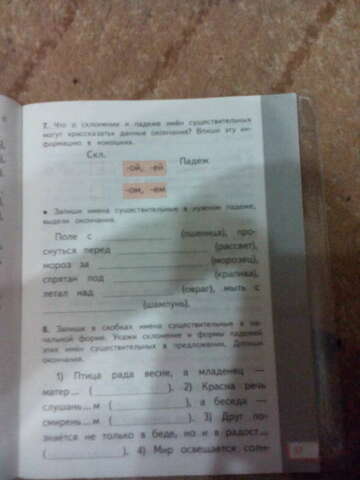 7. Что о склонении и падеже имён существительных
могут «рассказать» данные окончания? Впиши эту ин-
формацию в окошки.
Скл.
Падеж
-ой, -ей
-ом, -ем
• Запиши имена существительные в нужном падеже,
выдели окончания.
Поле с (пшеница), про-
снуться перед (рассвет),
мороз за (морозец),
спрятан под (крапива),
летал над (овраг), мыть с
(шампунь).
8. Запиши в скобках имена существительные в на-
чальной форме. Укажи склонение и формы падежей
этих имён существительных в предложении. Допиши
окончания.
1) Птица рада весне, а младенец —
матер ... ( ). 2) Красна речь
слушань ... м ( ), а беседа —
смирень ... м ( ). 3) Друг по-
знаётся не только в беде, но и в радост ...
( ). 4) Мир освещается солн-